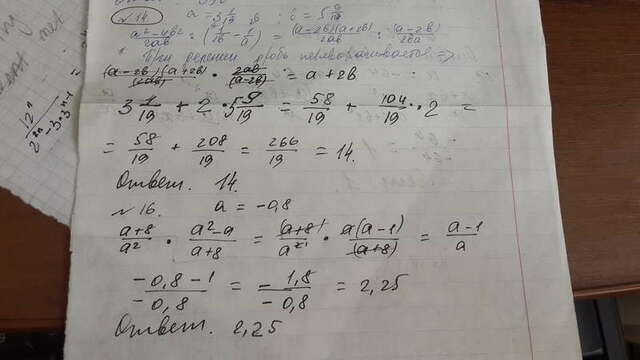 №14 a = 3 1/19, b = 5 9/19
(a²-4b²)/2ab : (1/2b - 1/a) = (a-2b)(a+2b)/2ab : (a-2b)/2ba
* При решении дробь переворачивается =>
(a-2b)(a+2b)/(2ab) · 2ab/(a-2b) = a+2b
3 1/19 + 2 · 5 9/19 = 58/19 + 104/19 · 2 =
= 58/19 + 208/19 = 266/19 = 14.
Ответ. 14.
№16. a = -0,8
(a+8)/a² · (a²-a)/(a+8) = (a+8)/a² · a(a-1)/(a+8) = (a-1)/a
(-0,8-1)/(-0,8) = (-1,8)/(-0,8) = 2,25
Ответ. 2,25
12ⁿ